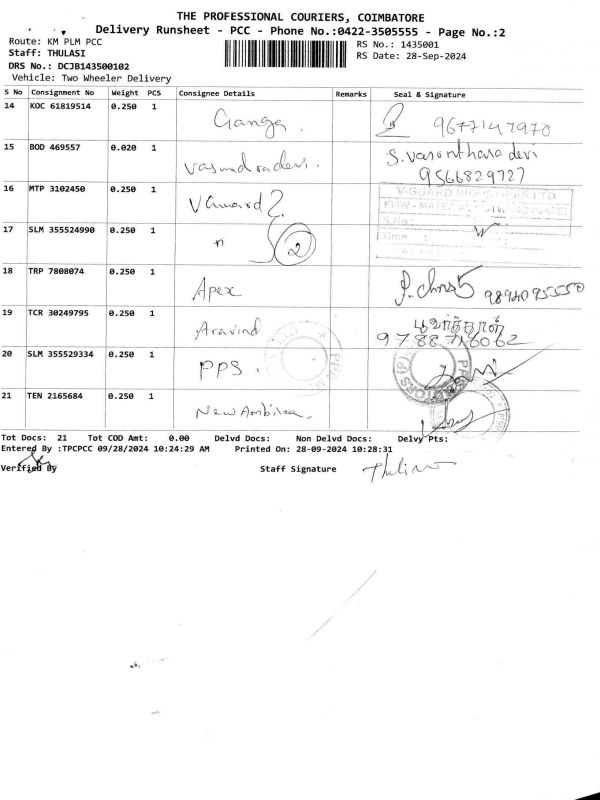 THE PROFESSIONAL COURIERS, COIMBATORE
Delivery Runsheet - PCC - Phone No.:0422-3505555 - Page No.:2
Route: KM PLM PCC
RS No.: 1435001
Staff: THULASI
RS Date: 28-Sep-2024
DRS No.: DCJB143500102
Vehicle: Two Wheeler Delivery
S No Consignment No Weight PCS Consignee Details Remarks Seal & Signature
14 KOC 61819514 0.250 1 Ganga. 9677147970
15 BOD 469557 0.020 1 vasundradevi. S. vasunthara devi
9566829727
16 MTP 3102450 0.250 1 V Guard V-GUARD INDUSTRIES LTD
17 SLM 355524990 0.250 1 " 2
18 TRP 7808074 0.250 1 Apex
19 TCR 30249795 0.250 1 Aravind
9788716062
20 SLM 355529334 0.250 1 PPS.
21 TEN 2165684 0.250 1 New Ambikaa.
Tot Docs: 21 Tot COD Amt: 0.00 Delvd Docs: Non Delvd Docs: Delvy Pts:
Entered By :TPCPCC 09/28/2024 10:24:29 AM Printed On: 28-09-2024 10:28:31
Verified By Staff Signature